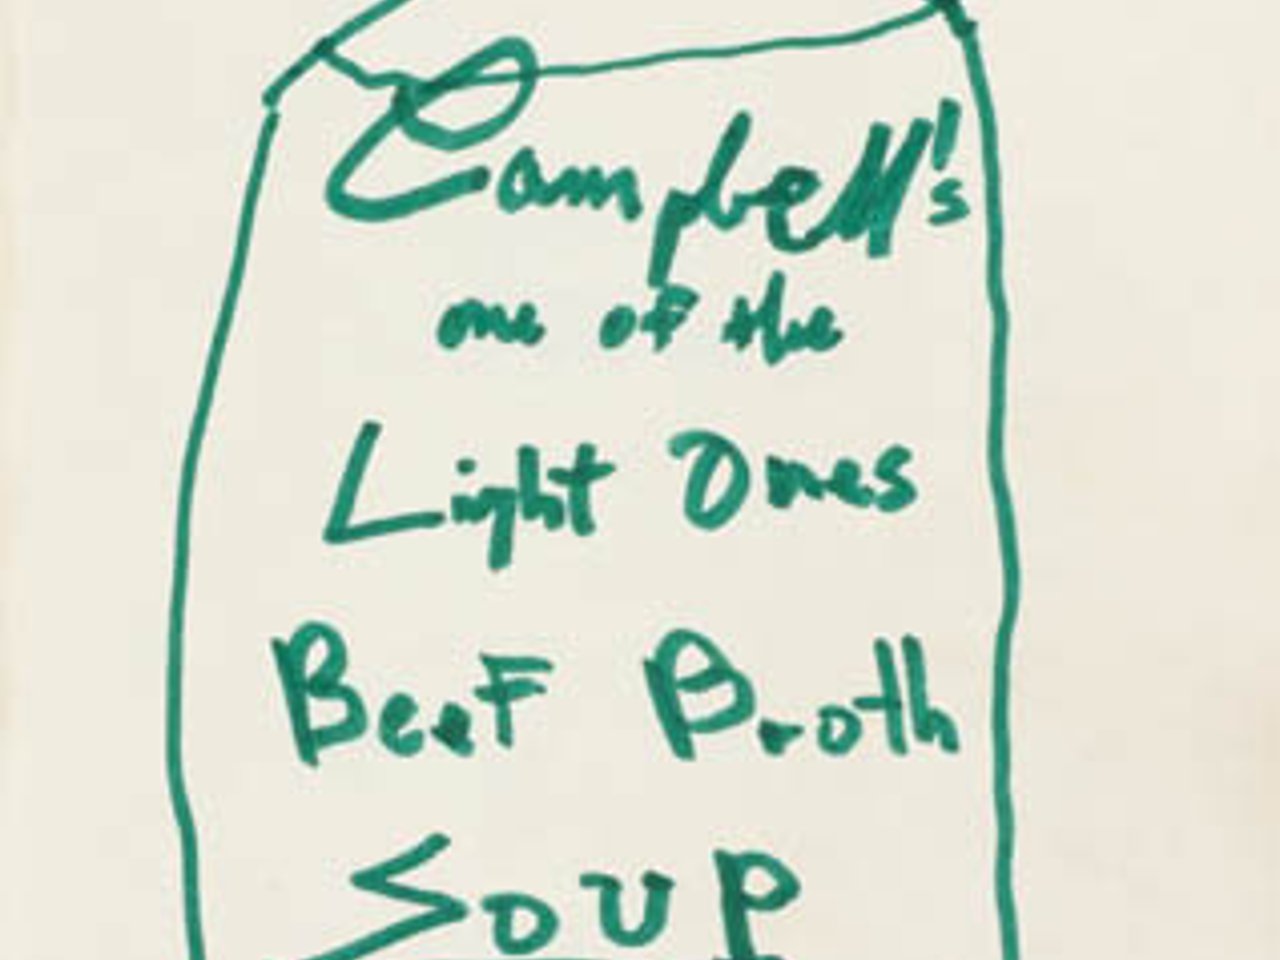 Campbell's
one of the
Light Ones
BeeF Broth
SoUP